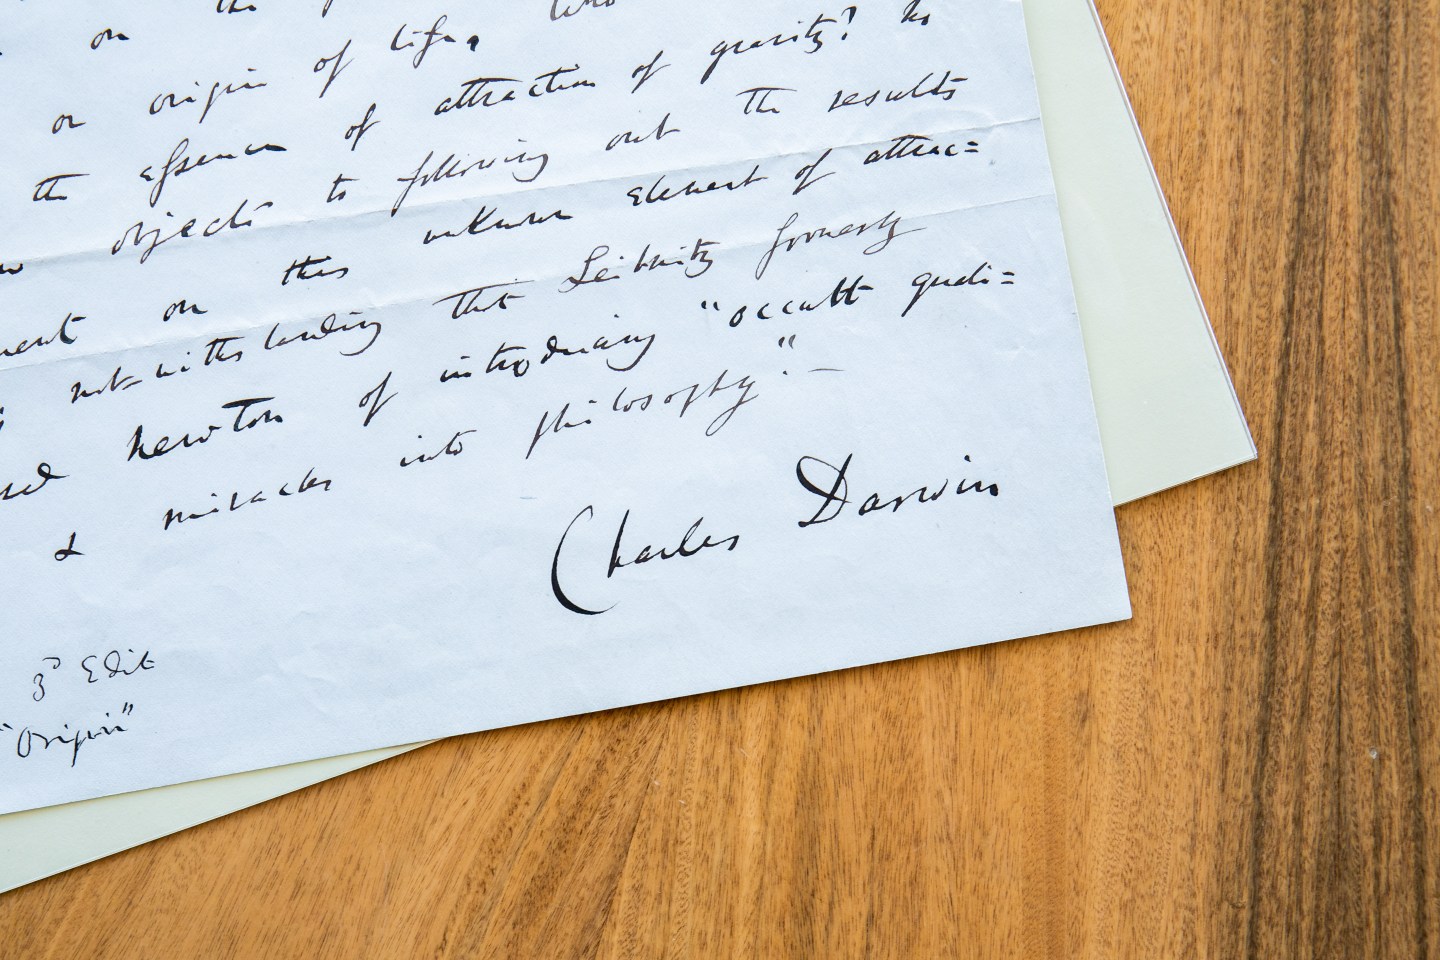 on the
on origin of life.
the essence of attraction of gravity? No
objects to following out the results
on this unknown element of attrac=
not-withstanding that Leibnitz formerly
Newton of introducing "occult quali=
& miracles into philosophy".—
Charles Darwin
3d Edit
"Origin"